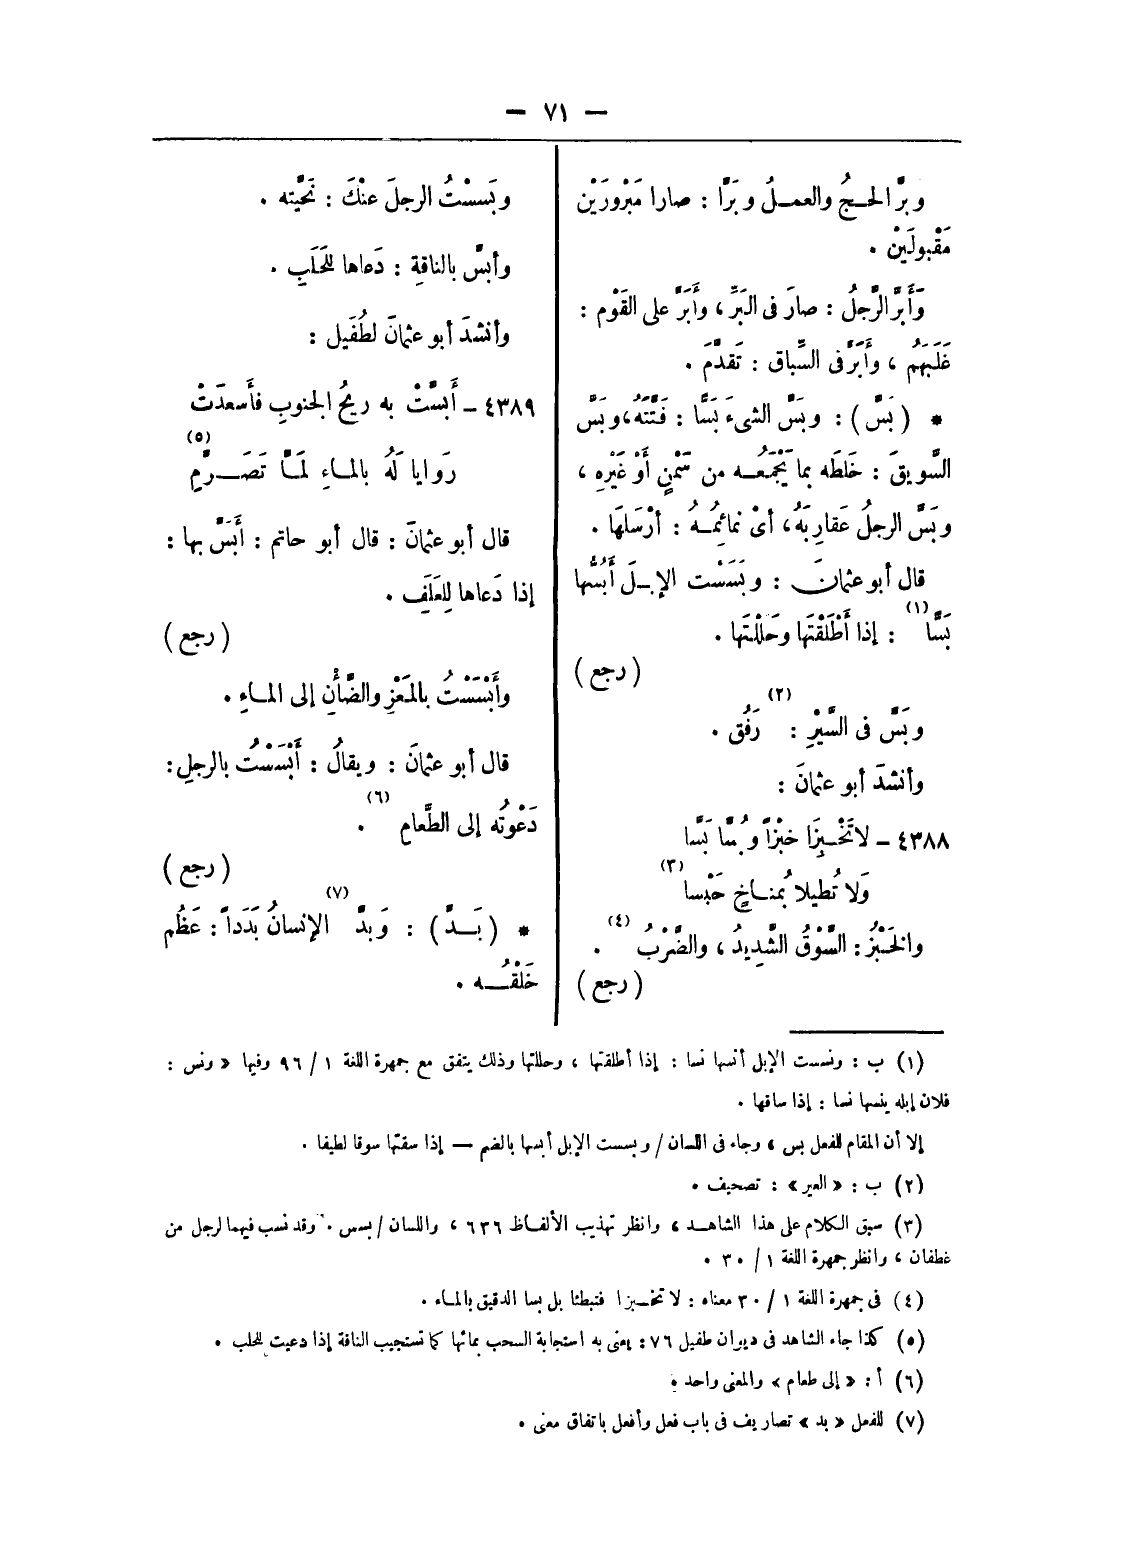 — ٧١ —
وبرَّ الحـجُ والعمـلُ وبَرَّا : صارا مَبْرُورَيْن
مَقْبولَيْن .
وَأَبَرَّ الرَّجلُ : صارَ فى البَرِّ ، وأَبَرَّ على القَوْم :
غَلَبَهُم ، وأَبَرَّ فى السِّباق : تَقدَّمَ .
* ( بَسَّ ) : وبَسَّ الشىءَ بَسًّا : فَتَّتَهُ ، وبَسَّ
السَّويقَ : خَلطَه بما يَجْمَعُـه من سَمْنٍ أَوْ غَيْرِهِ ،
وبَسَّ الرجلُ عَقارِبَهُ ، أىْ نمائِمُـهُ : أرْسَلَهَا .
قال أبو عثمانَ : وبَسَسْت الإبـلَ أَبُسُّها
بَسًّا (١) : إذا أَطْلَقْتَها وحَلَلْتَها .
( رجع )
وبَسَّ فى السَّيْرِ (٢) : رَفُق .
وأنشدَ أبو عثمانَ :
٤٣٨٨ – لاتَخْـبِزَا خبْزاً وبُسَّا بَسَّا
وَلا تُطيلا بُمنـاخٍ حَبْسا (٣)
والخَبْزُ : السَّوْقُ الشَّدِيدُ ، والضَّرْبُ (٤) .
( رجع )
وبَسسْتُ الرجلَ عنْكَ : نَحَّيْته .
وأبسَّ بالناقةِ : دَعاها للحَلَبِ .
وأنشدَ أبو عثمانَ لطُفَيل :
٤٣٨٩ – أَبسَّتْ به ريحُ الجنوبِ فأَسعدَتْ
رَوايا لَهُ بالمـاءِ لمَـَّا تَصَـرَّمِ (٥)
قال أبو عثمانَ : قال أبو حاتم : أَبَسَّ بها :
إذا دَعاها لِلعَلَفِ .
( رجع )
وأَبْسَسْتُ بالمَعْزِ والضَّأْنِ إلى المـاءِ .
قال أبو عثمانَ : ويقالُ : أَبْسَسْتُ بالرجلِ :
دَعْوتُه إلى الطَّعامِ (٦) .
( رجع )
* ( بَـدَّ ) : وَبدَّ (٧) الإنسانُ بَدَداً : عَظُم
خَلْقُـه .
(١) ب : ونسست الإبل أنسها نسا : إذا أطلقتها ، وحللتها وذلك يتفق مع جمهرة اللغة ١ / ٩٦ وفيها « ونس :
فلان إبله ينسها نسا : إذا ساقها .
إلا أن المقام للفعل بس ، وجاء فى اللسان / وبسست الإبل أبسها بالضم — إذا سقتها سوقا لطيفا .
(٢) ب : « العير » : تصحيف .
(٣) سبق الكلام على هذا الشاهـد ، وانظر تهذيب الألفـاظ ٦٣٦ ، واللسان / بسس . وقد نسب فيهما لرجل من
غطفان ، وانظر جمهرة اللغة ١ / ٣٠ .
(٤) فى جمهرة اللغة ١ / ٣٠ معناه : لا تخـبزا فتبطئا بل بسا الدقيق بالمـاء .
(٥) كذا جاء الشاهد فى ديوان طفيل ٧٦ : يعنى به استجابة السحب بمائها كما تستجيب الناقة إذا دعيت للحلب .
(٦) أ : « إلى طعام » والمعنى واحد .
(٧) للفعل « بد » تصاريف فى باب فعل وأفعل باتفاق معنى .